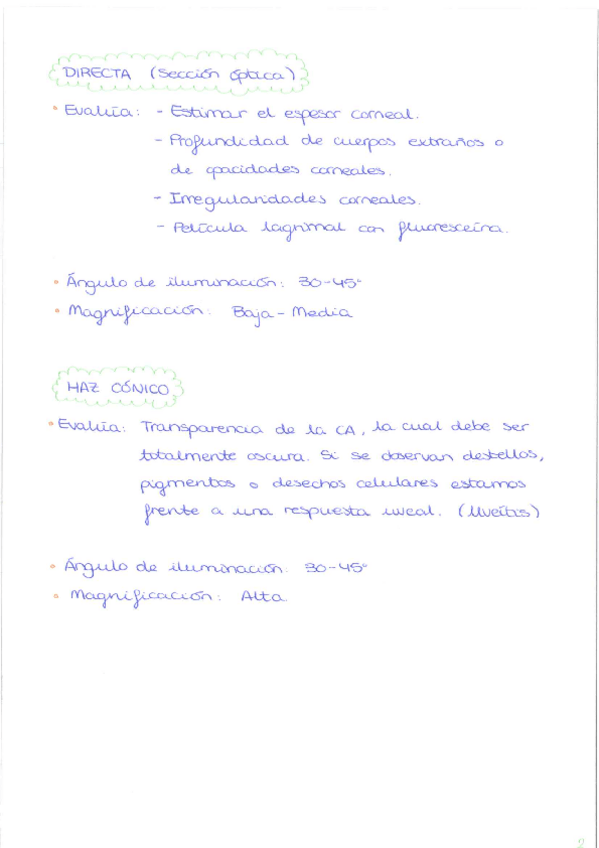 DIRECTA (Sección óptica)
• Evalúa: - Estimar el espesor corneal.
- Profundidad de cuerpos extraños o
de opacidades corneales.
- Irregularidades corneales.
- Película lagrimal con fluoresceína.
• Ángulo de iluminación: 30-45º
• Magnificación: Baja - Media
HAZ CÓNICO
• Evalúa: Transparencia de la CA, la cual debe ser
totalmente oscura. Si se observan destellos,
pigmentos o desechos celulares estamos
frente a una respuesta uveal. (Uveítis)
• Ángulo de iluminación: 30-45º
• Magnificación: Alta
2